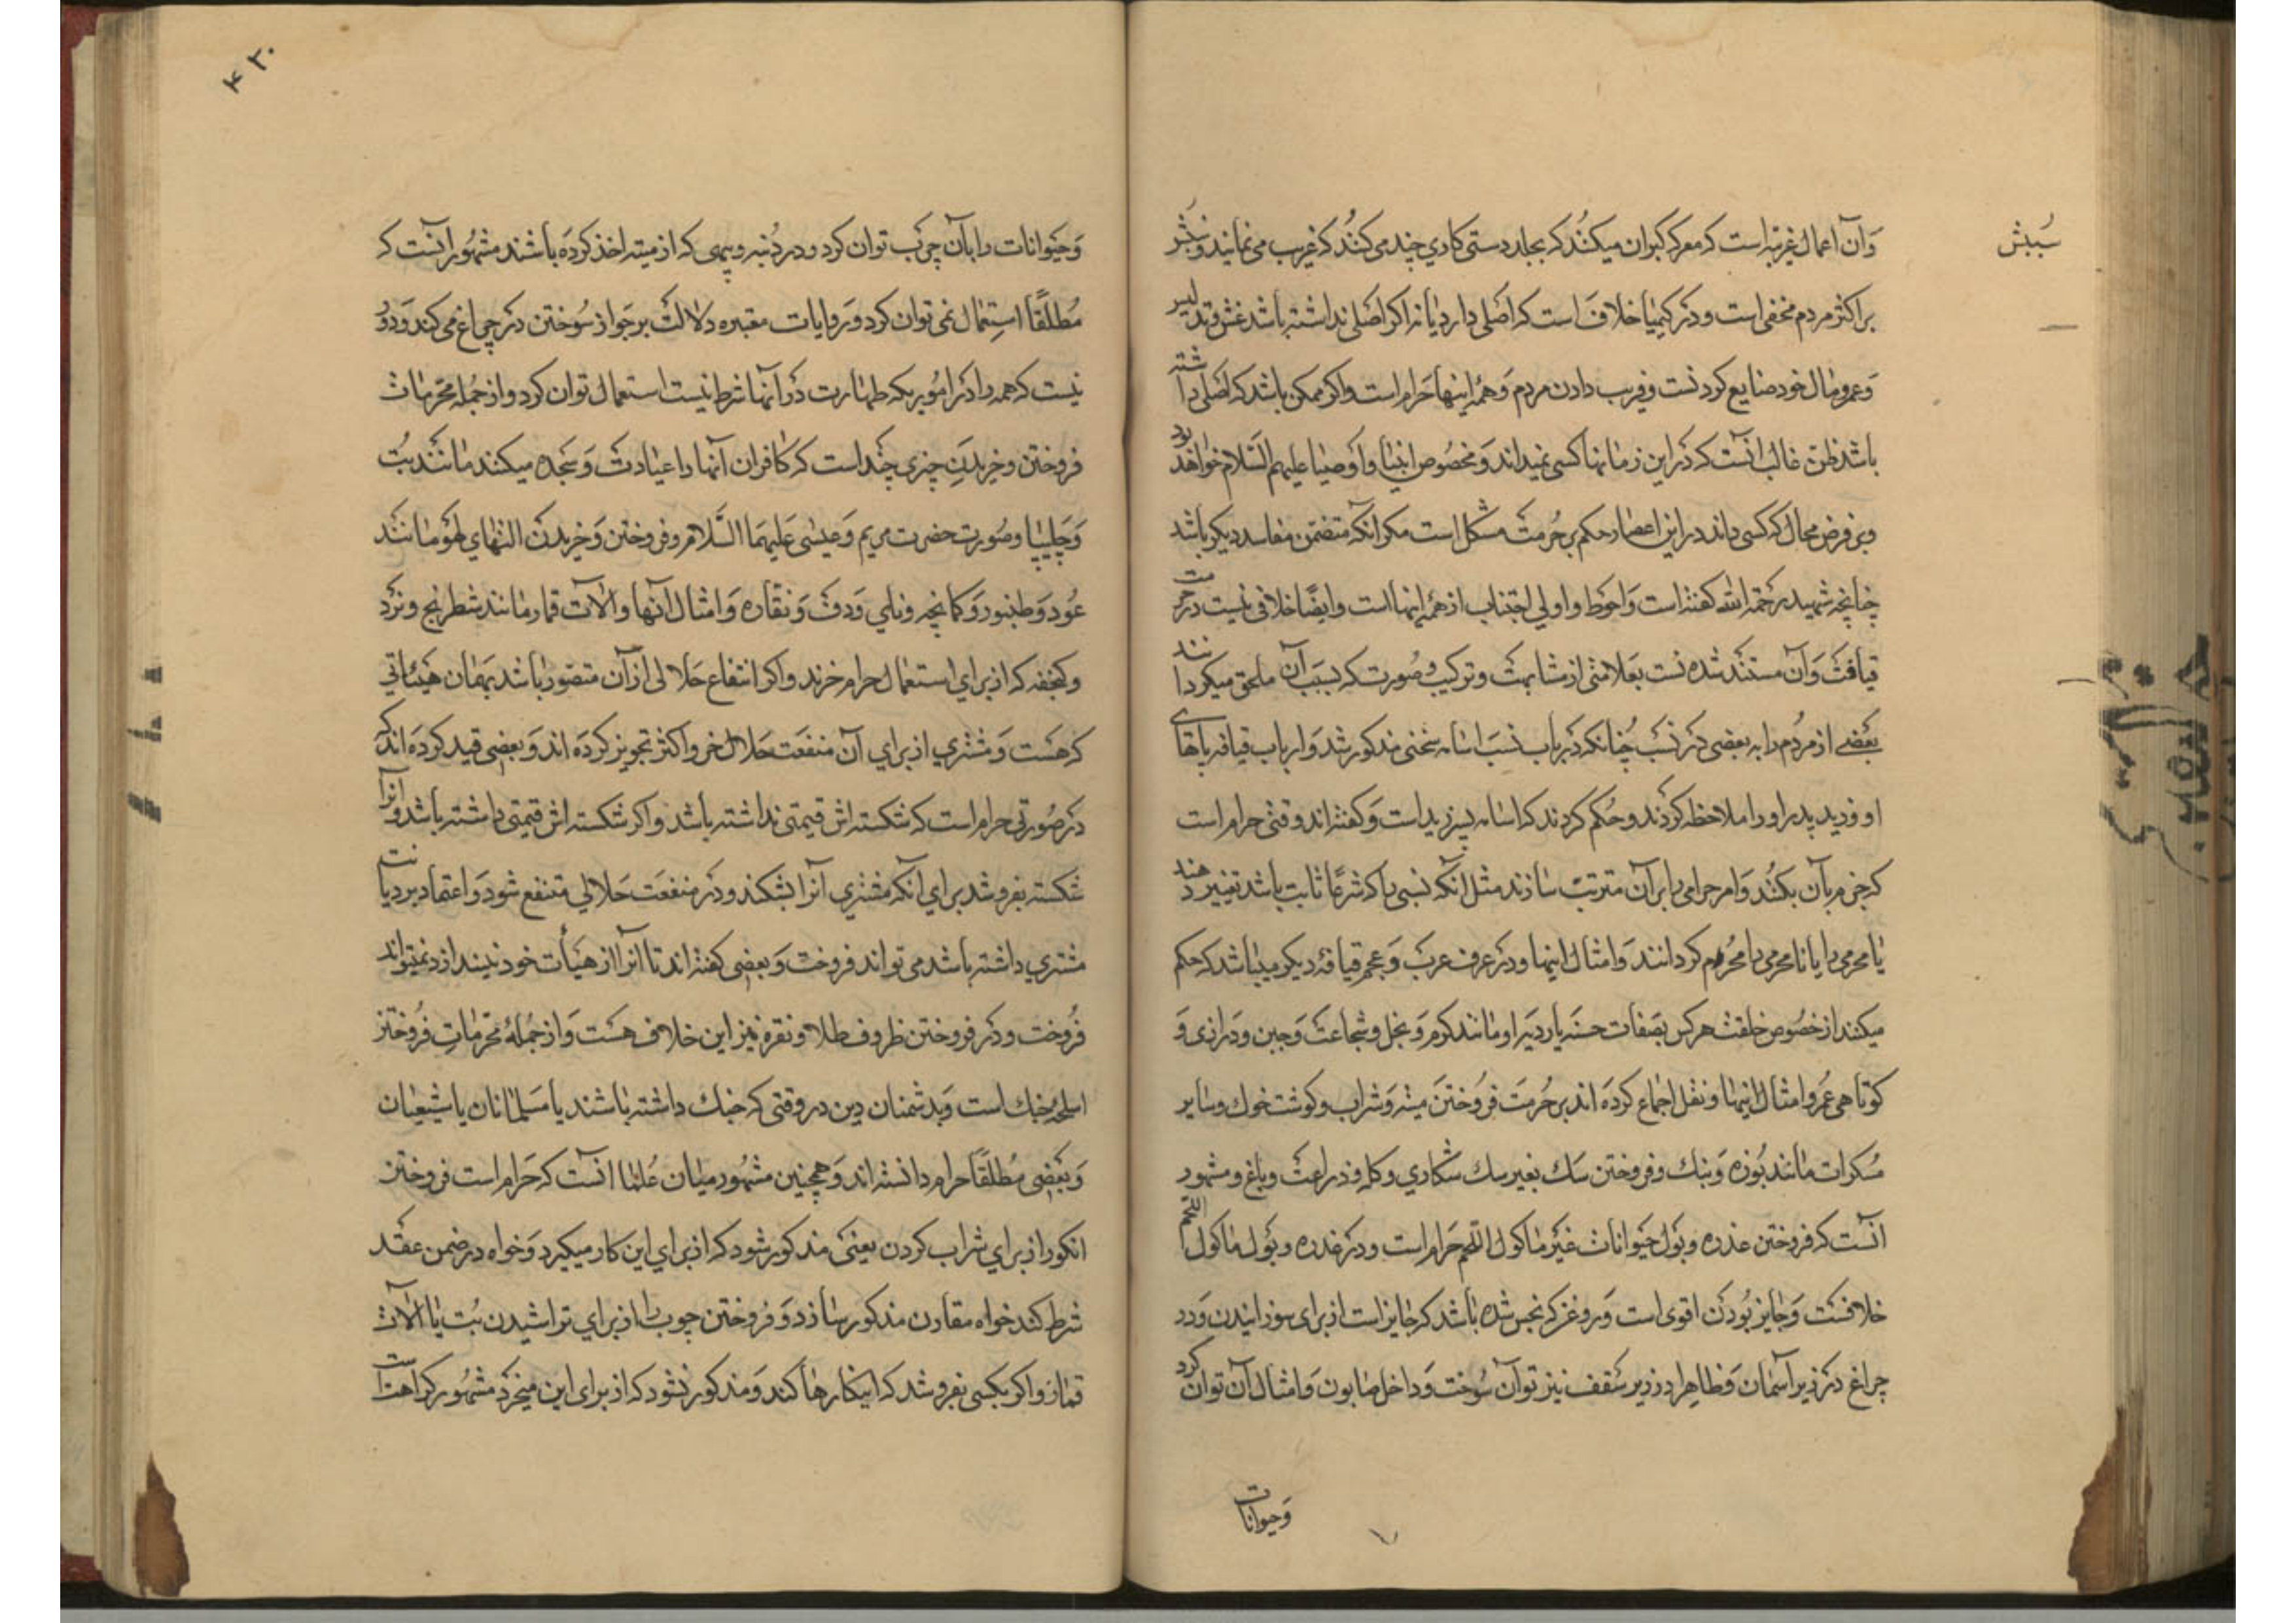 وآن اعمال غریبه است که معرکه کیران میکنند که بجلد دستی کاری چند می کنند که غریب می نمایند و سببش
سببش
بر اکثر مردم مخفی است و در کیمیا خلاف است که اصلی دارد یا نه اکر اصلی نداشته باشد غش و تدلیس
و عمر و مال خود ضایع کردنست و فریب دادن مردم و همه اینها حرام است و اکر ممکن باشد که اصلی داشته
باشد ظن غالب آنست که در این زمانها کسی نمیداند و مخصوص انبیا و اوصیا علیهم السلام خواهد بود
و بر فرض محال که کسی داند در این اعصار حکم بر حرمت مشکل است مکر آنکه متضمن مفاسد دیکر باشد
چنانچه شهید رحمه الله کفته است و احوط و اولی اجتناب از همه اینها است و ایضا خلافی نیست در حرمت
قیافت و آن مستند شدنست بعلامتی از مشابهت و ترکیب و صورت که بسبب آن ملحق میکردانند
بعضی از مردم را به بعضی در نسب چنانکه در باب نسب اسامه سخنی مذکور شد و ارباب قیافه پاهای
او و زید پدر او را ملاحظه کردند و حکم کردند که اسامه پسر زید است و کفته اند وقتی حرام است
که جزم بآن بکنند و امر حرامی را بر آن مترتب سازند مثل آنکه نسبی را که شرعا ثابت باشد تغییر دهند
یا محرمی را یا نامحرمی را محرم کردانند و امثال اینها و در عرف عرب و عجم قیافه دیکر میباشد که حکم
میکنند از خصوص خلقت هر کس بصفات حسنه یا ردیه او مانند کرم و بخل و شجاعت و جبن و درازی و
کوتاهی عمر و امثال اینها و نقل اجماع کرده اند بر حرمت فروختن میته و شراب و کوشت خوک و سایر
مسکرات مانند بوزه و بنک و فروختن سک بغیر سک شکاری و کله و زراعت و باغ و مشهور
آنست که فروختن عذره و بول حیوانات غیر ماکول اللحم حرام است و در عذره و بول ماکول اللحم
خلافست و جایز بودن اقوی است و روغن که نجس شده باشد که جایز است از برای سوزانیدن و در
چراغ در زیر آسمان و ظاهرا در زیر سقف نیز توان سوخت و داخل صابون و امثال آن توان کرد
وحیوانات
۴۳۰
و حیوانات را بآن چرب توان کرد و در دنبه و پیهی که از میته اخذ کرده باشند مشهور آنست که
مطلقا استعمال نمی توان کرد و روایات معتبره دلالت بر جواز سوختن در چراغ می کند و دور
نیست که همه را در اموریکه طهارت در آنها شرط نیست استعمال توان کرد و از جمله محرمات
فروختن و خریدن چیزی چند است که کافران آنها را عبادت و سجده میکنند مانند بت
و چلیپا و صورت حضرت مریم و عیسی علیهما السلام و فروختن و خریدن التهای لهو مانند
عود و طنبور و کمانچه و نای و دف و نقاره و امثال آنها و آلات قمار مانند شطرنج و نرد
و کنجفه که از برای استعمال حرام خرند و اکر انتفاع حلالی از آن متصور باشد بهمان هیئاتی
که هست و مشتری از برای آن منفعت حلال خرد اکثر تجویز کرده اند و بعضی قید کرده اند که
در صورتی حرام است که شکسته اش قیمتی نداشته باشد و اکر شکسته اش قیمتی داشته باشد و آنرا
شکسته بفروشد برای آنکه مشتری آنرا بشکند و در منفعت حلالی منتفع شود و اعتماد بر دیانت
مشتری داشته باشد می تواند فروخت و بعضی کفته اند تا آنرا از هیأت خود نیندازد نمیتواند
فروخت و در فروختن ظروف طلا و نقره نیز این خلاف هست و از جمله محرمات فروختن
اسلحه جنک است و بدشمنان دین در وقتی که جنک داشته باشند یا مسلمانان یا شیعیان
و بعضی مطلقا حرام دانسته اند و همچنین مشهور میان علما آنست که حرام است فروختن
انکور از برای شراب کردن یعنی مذکور شود که از برای این کار میکیرد و خواه در ضمن عقد
شرط کند خواه مقارن مذکور سازد و فروختن چوب را از برای تراشیدن بت یا آلات
قمار و اکر بکسی بفروشد که اینکارها کند و مذکور نشود که از برای این میخرد مشهور کراهت است